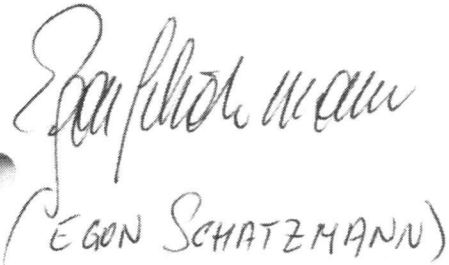 Egon Schatzmann
(EGON SCHATZMANN)